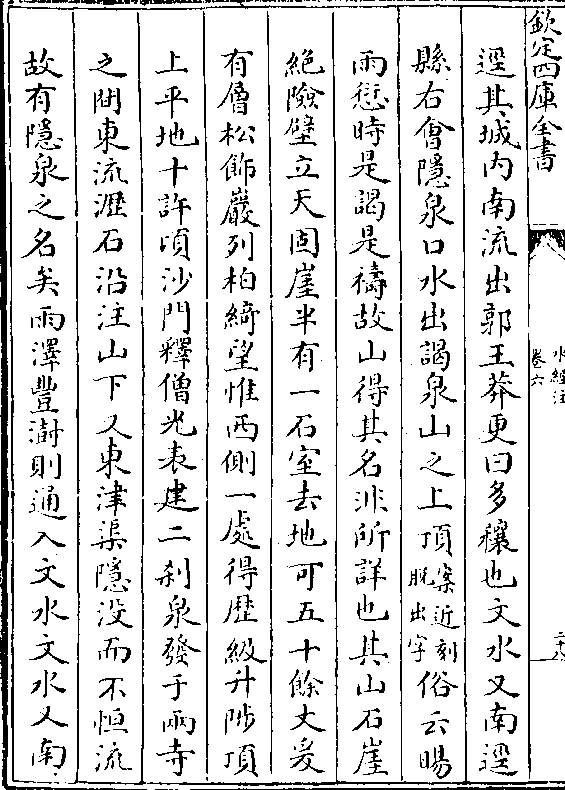 欽定四庫全書
水經注
卷六
逕其城内南流出郭王莽更曰多穰也文水又南逕
縣右會隱泉口水出謁泉山之上頂案近刻脱出字俗云暘
雨愆時是謁是禱故山得其名非所詳也其山石崖
絶險壁立天固崖半有一石室去地可五十餘丈爰
有層松飾巖列柏綺望惟西側一處得歴級升陟頂
上平地十許頃沙門釋僧光表建二刹泉發于兩寺
之間東流瀝石沿注山下又東津渠隱没而不恒流
故有隱泉之名矣雨澤豐澍則通入文水文水又南